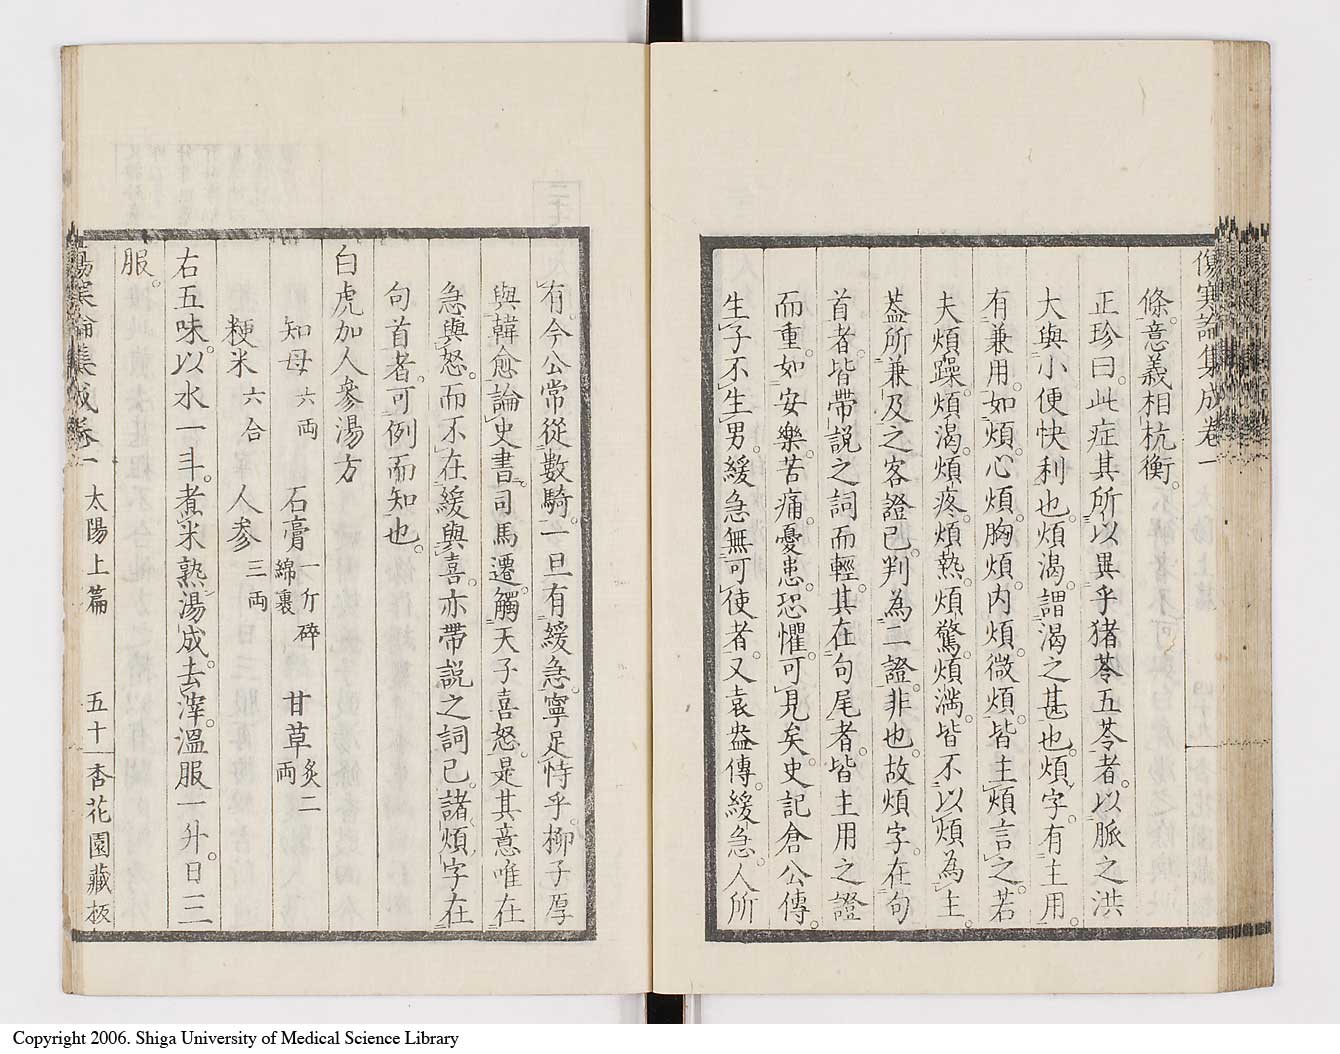 傷寒論集成卷一
條。意義相抗衡。
正珍曰。此症其所以異乎猪苓五苓者。以脈之洪
大與小便快利也。煩渴。謂渴之甚也。煩字。有主用。
有兼用。如煩心煩胸煩內煩微煩。皆主煩言之。若
夫煩躁。煩渴。煩疼。煩熱。煩驚。煩滿。皆不以煩為主。
蓋所兼及之客證已。判為二證。非也。故煩字。在句
首者。皆帶說之詞而輕。其在句尾者。皆主用之證
而重。如安樂。苦痛。憂患。恐懼。可見矣。史記倉公傳。
生子不生男。緩急無可使者。又袁盎傳。緩急。人所
有。今公常從數騎。一旦有緩急。寧足恃乎。柳子厚
與韓愈論史書。司馬遷。觸天子喜怒。是其意唯在
急與怒。而不在緩與喜。亦帶說之詞已。諸煩字在
句首者。可例而知也。
白虎加人參湯方
知母六兩 石膏一斤碎綿裹 甘草炙二兩
粳米六合 人參三兩
右五味。以水一斗。煮米熟湯成。去滓。溫服一升。日三
服。
傷寒論集成卷一 太陽上篇 五十 杏花園藏板
Copyright 2006. Shiga University of Medical Science Library